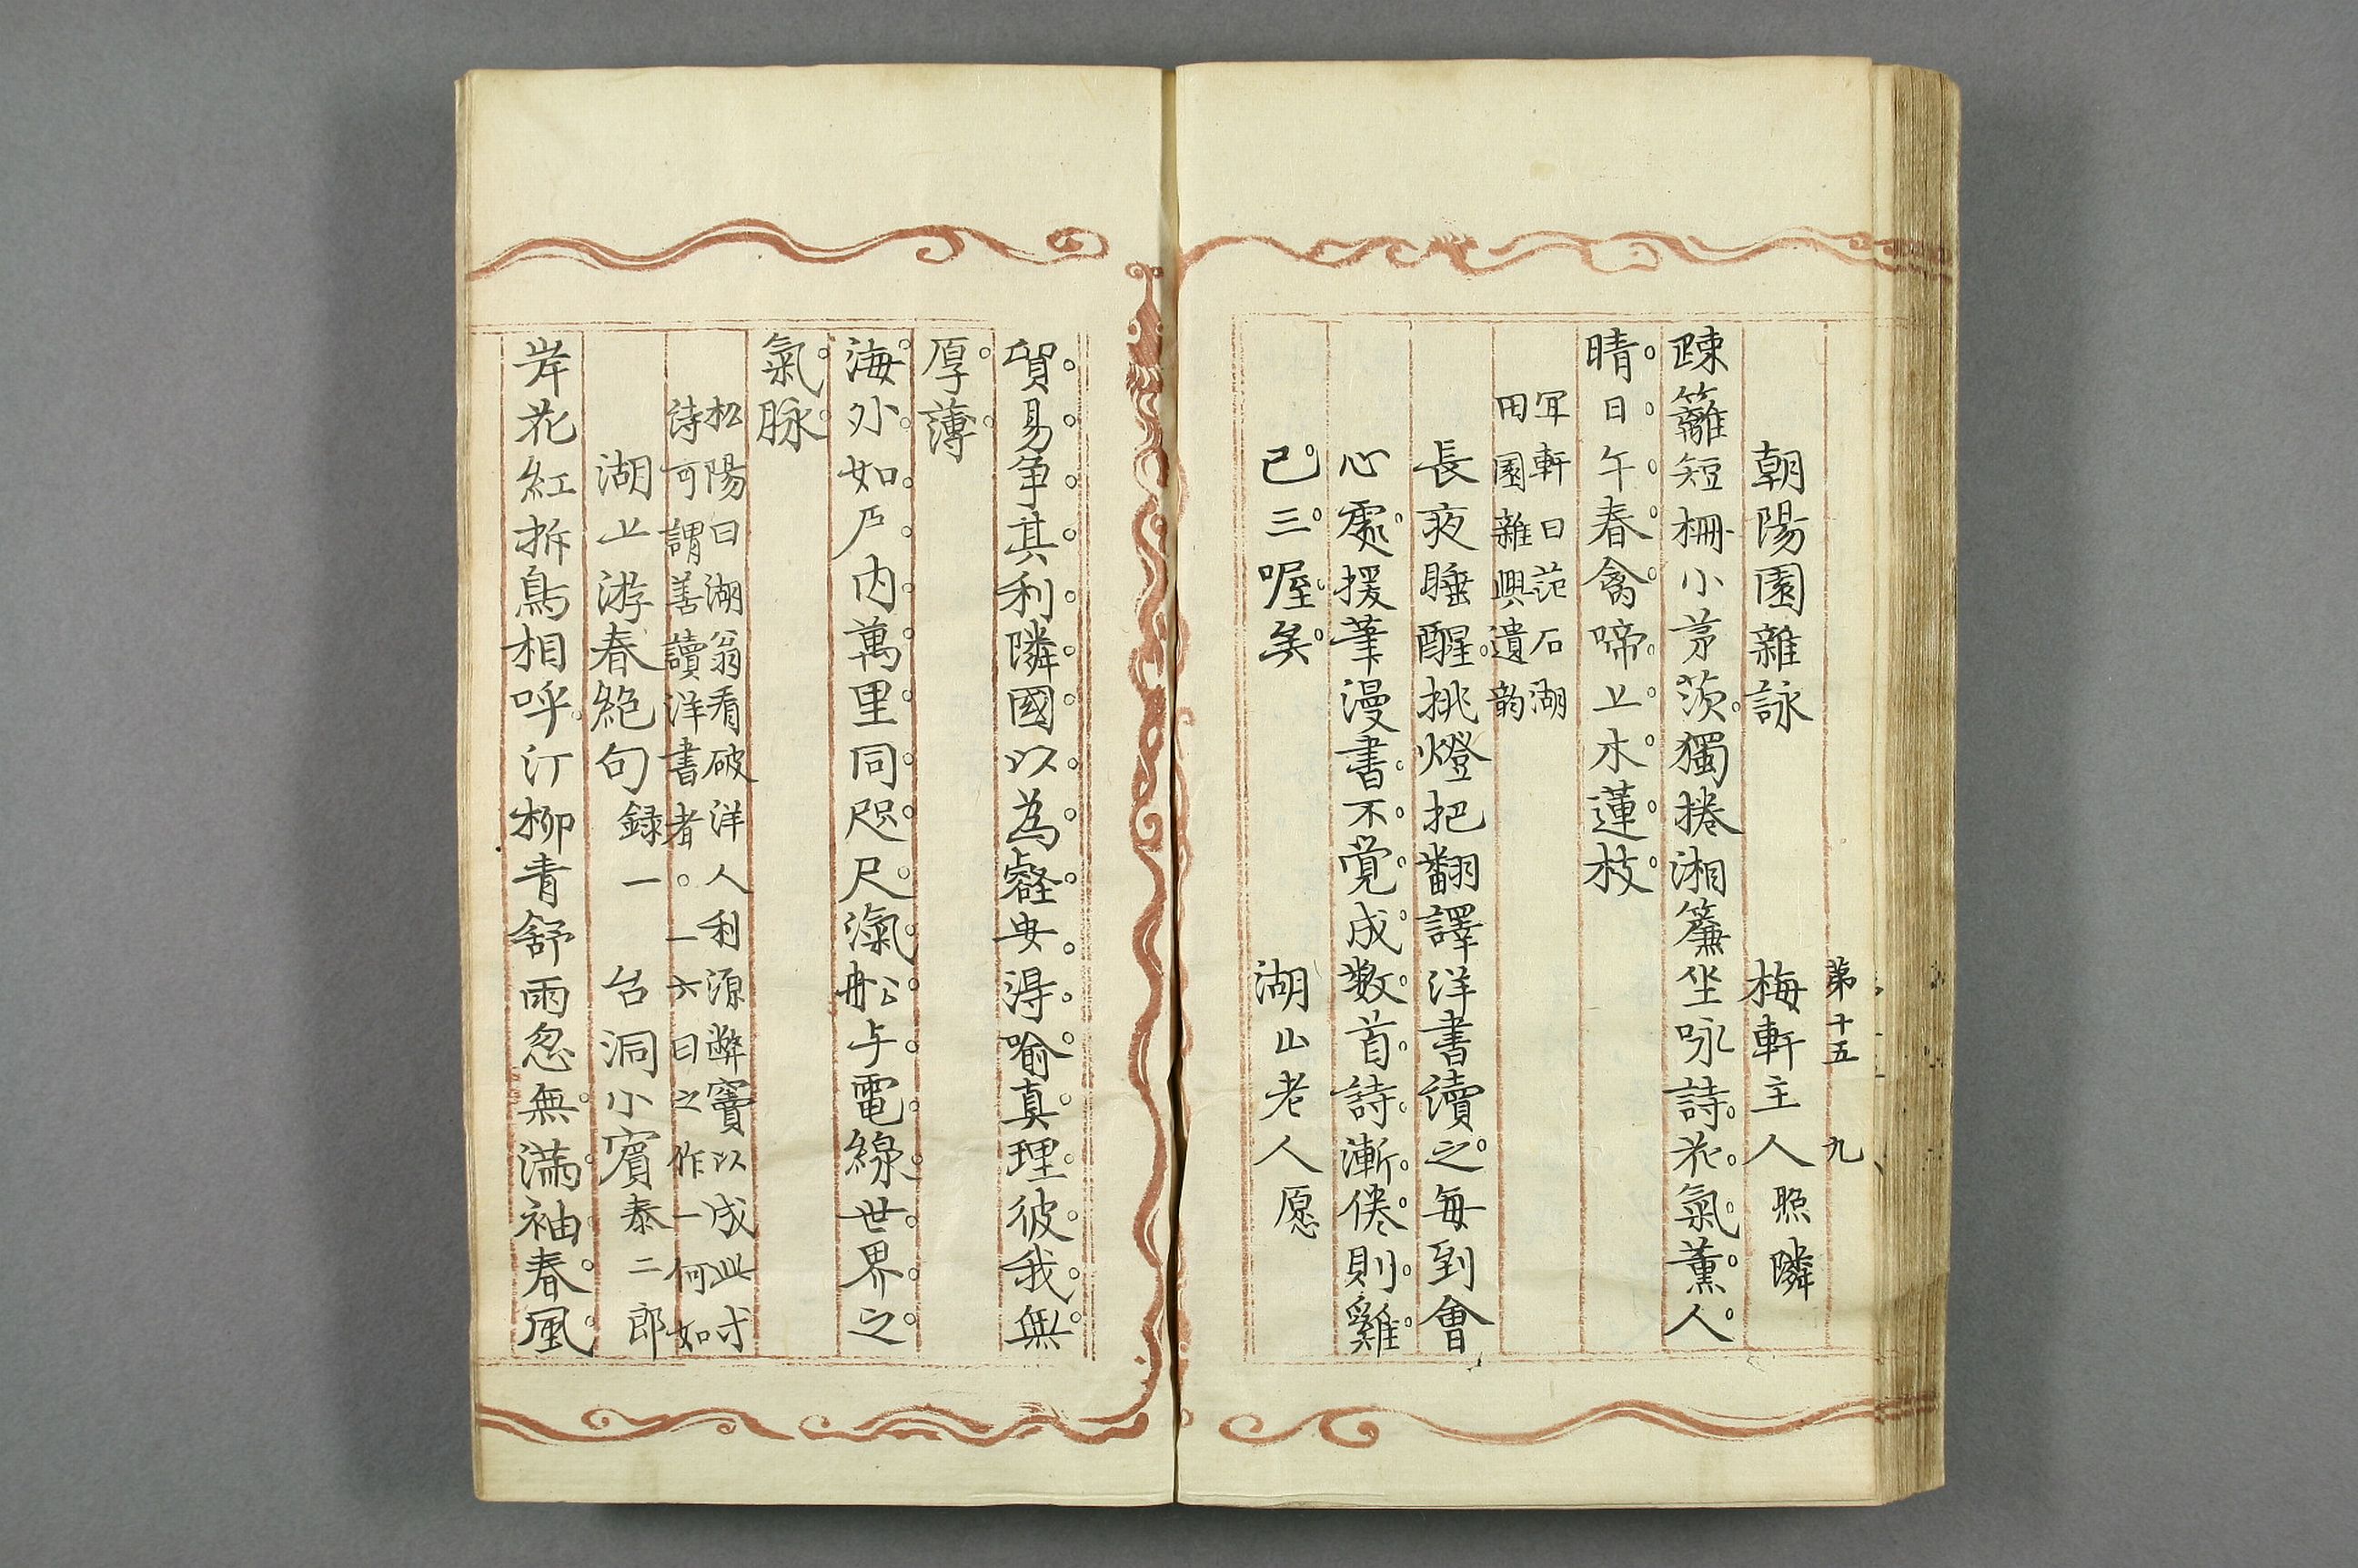 第十五　九
朝陽園雜詠　梅軒主人照隣
疎籬短柵小茅茨。獨捲湘簾坐咏詩。花。氣。薫。人。
晴。日。午。春。禽。啼。上。木。蓮。枝。
冝軒曰范石湖
田園雜興遺韵
長夜睡醒。挑燈把翻譯洋書讀之。每到會
心處。援筆漫書。不。覚。成。数。首。詩。漸。倦。則。雞。
已。三。喔。矣。　湖山老人愿
貿。易。争。其。利。隣。國。以。為。壑。安。得。喻。真。理。彼。我。無。
厚。薄。
海。外。如。戶。内。萬。里。同。咫。尺。滊。船。与。電。線。世。界。之。
氣。脉。
松陽曰湖翁看破洋人利源弊竇以成此寸
詩可謂善讀洋書者。一六曰之作一何如
湖上游春絶句録一　台洞小賓泰二郎
岸花紅拆鳥相呼。汀柳青舒雨忽無。滿。袖。春。風。